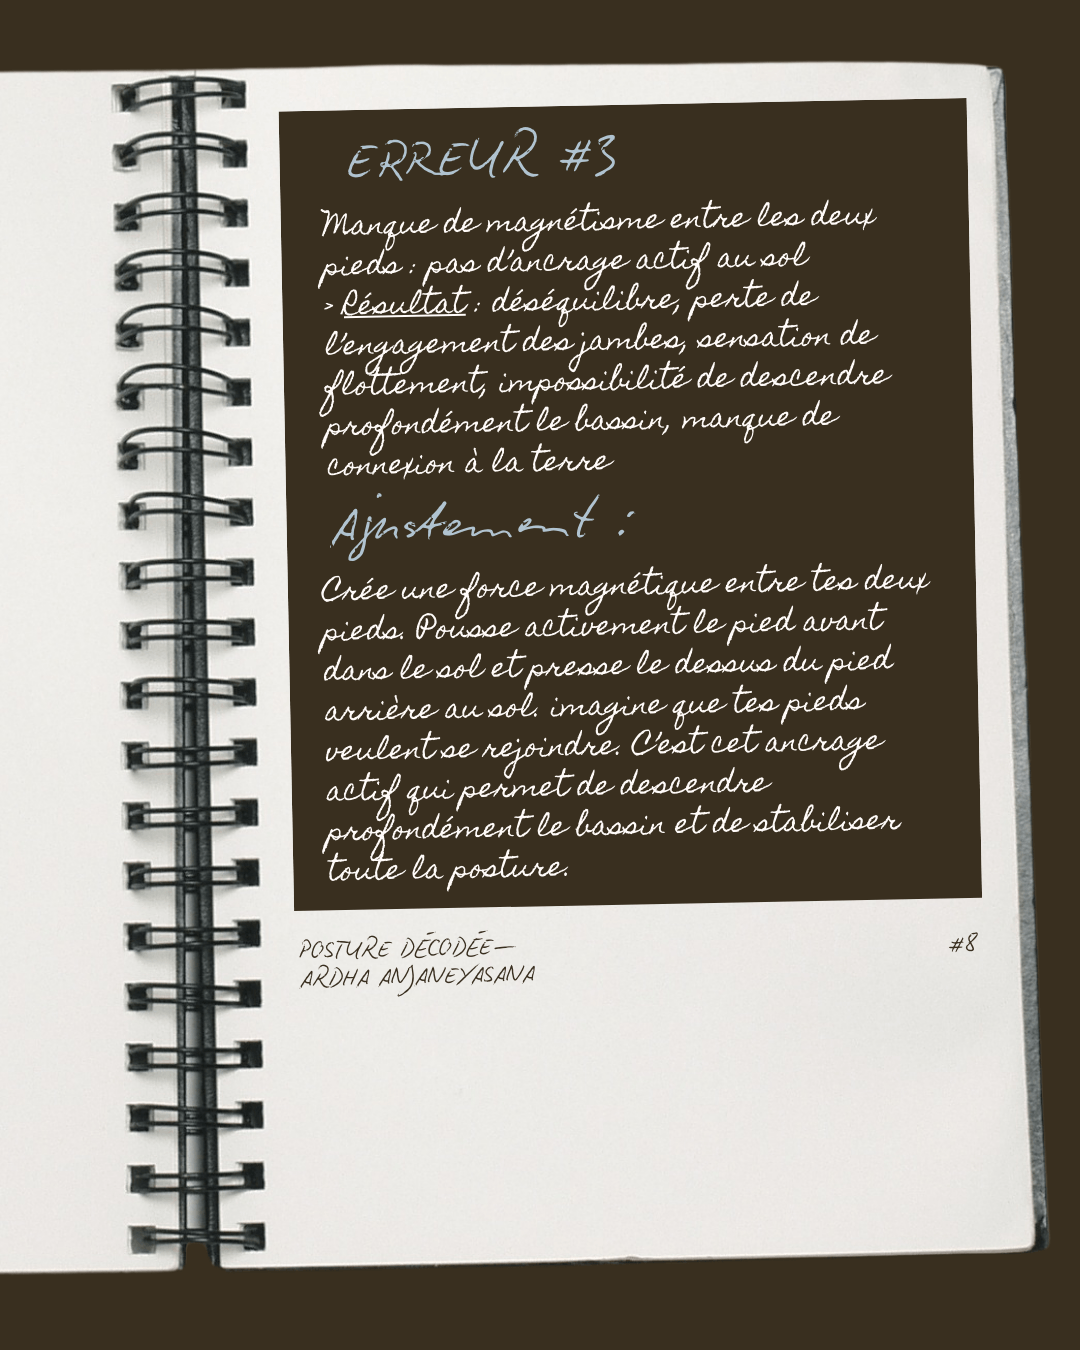 ERREUR #3
Manque de magnétisme entre les deux
pieds : pas d'ancrage actif au sol
> Résultat : déséquilibre, perte de
l'engagement des jambes, sensation de
flottement, impossibilité de descendre
profondément le bassin, manque de
connexion à la terre
Ajustement :
Crée une force magnétique entre tes deux
pieds. Pousse activement le pied avant
dans le sol et presse le dessus du pied
arrière au sol. imagine que tes pieds
veulent se rejoindre. C'est cet ancrage
actif qui permet de descendre
profondément le bassin et de stabiliser
toute la posture.
POSTURE DÉCODÉE—
ARDHA ANJANEYASANA
#8